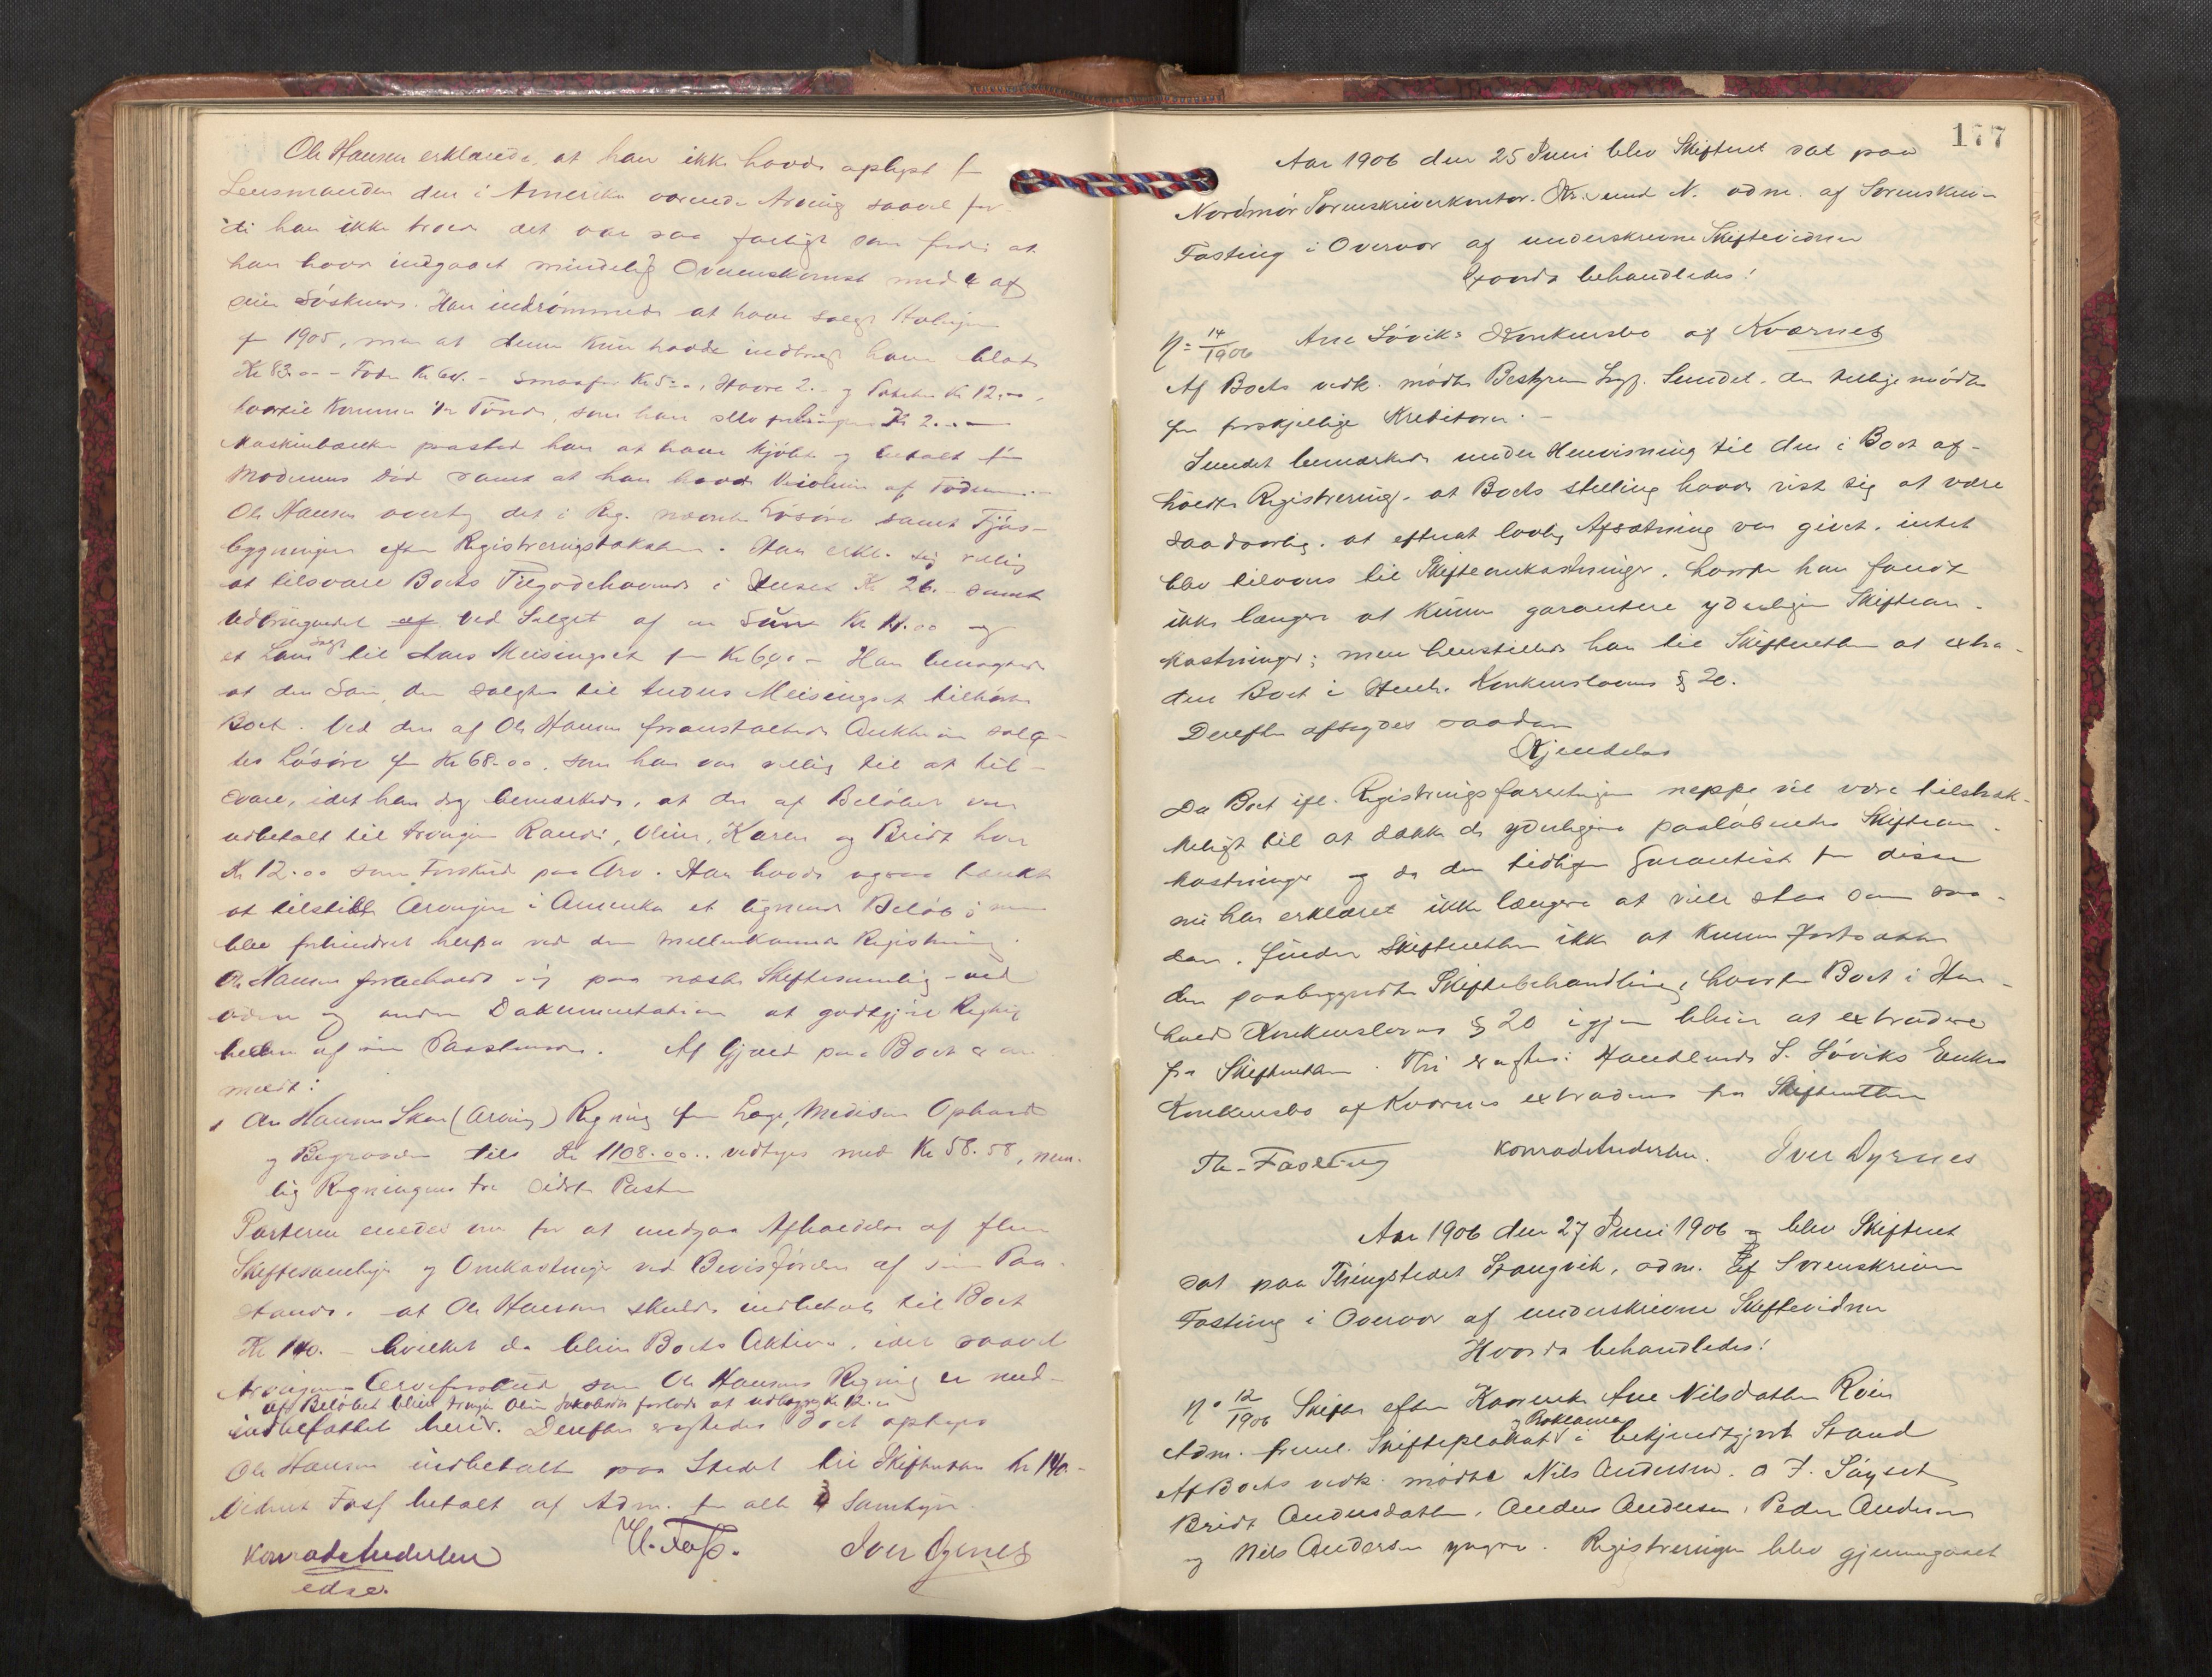 Ole Hansen erklærede, at han ikke havde oplyst for
Lensmanden den i Amerika værende Arving saavel for-
di han ikke troede det var saa farligt som fordi at
han havde indgaaet mindelig Overenskomst med 4 af
sine Søskende. Han indrømmede at have solgt Avlingen
for 1905, men at denne kun havde indbragt ham blot
Kr 83.00 - Foder Kr 64.- Smaafor Kr 5.00, Havre 2.- og Poteter Kr 12.00,
hvortil kommer 1/2 Tønde, som han selv Kr 2.00
Maskinbænken paastod han at have kjøbt og betalt før
Moderens Død samt at han havde Violinen af Faderen.-
Ole Hansen overtog det i Reg. nævnte Løsøre samt Fjøs-
bygningen efter Registreringstaksten. Han erkl. sig villig
at tilsvare Boets Tilgodehavende i Huset Kr. 26.- samt
Udbringendet af ved Salget af en Sau Kr 11.00 og
et Lam solgt til Lars Meisingset for Kr 6,00 - Han benægtede
at den Sau, der solgtes til Anders Meisingset tilhørte
Boet. Ved den af Ole Hansen foranstaltede Auktion solg-
tes Løsøre for Kr 68.00, som han var villig til at til-
svare, idet han dog bemærkede, at der af Beløbet var
udbetalt til Arvingerne Randi, Oline, Karen og Bridt hver
Kr 12.00 som Forskud paa Arv. Han havde ogsaa tænkt
at tilstille Arvingen i Amerika et lignende Beløb; men
blev forhindret herfra ved den mellemkomne Registrering.
Ole Hansen forbeholdt sig paa næste Skiftesamling - ved
Vidner og anden Dokumentation at godtgjøre Rigtig-
heden af sine Paastande. Af Gjæld paa Boet er an-
meldt:
1 Ole Hansen Skar (Arving) Regning for Læge, Medisin Ophold
og Begravelse tils Kr 1108.00.. vedtages med Kr 58.58, nem-
lig Regningens tre sidste Poster
Parterne enedes om for at undgaa Afholdelse af flere
Skiftesamlinger og Omkostninger ved Bevisførslen af sine Paa-
stande, at Ole Hansen skulde indbetale til Boet
Kr 140.- hvilket da bliver Boets Aktiva, idet saavel
Arvingernes Arveforskud som Ole Hansens Regning er med-
af Beløbet bliver Arving Oline Jakobsdr forlods at udlægge Kr 12.00
indbefattet heri. Derefter agtedes Boet optages
Ole Hansen indbetalte paa Stedet til Skifteretten Kr 140-
Vidnet Fosf betalt af Adm. for alle 3 Samlinger.
Konrad Andersen Th. Fast. Iver Dyrnes
edsv.
177
Aar 1906 den 25 Juni blev Skifteret sat paa
Nordmør Sorenskriverkontor. Kr.sund N. adm. af Sorenskriver
Fasting i Overvær af underskrevne Skiftevidner
Hvorda behandledes!
No 14/1906 Ane Løviks Konkursbo af Kværnes
Af Boets vedk. mødte Bestyrer Sagf. Sundet, der tillige mødte
for forskjellige Kreditorer.-
Sundet bemærkede under Henvisning til den i Boet af-
holdte Registrering, at Boets stilling havde vist sig at være
saa daarlig, at efterat lovlig Afsætning var givet, intet
blev tilovers til Skifteomkostninger, hvorfor han fandt
ikke længere at kunne garantere yderligere Skifteom-
kostninger; men henstillede han til Skifteretten at extra-
dere Boet i Henh. Konkurslovens § 20.
Derefter afsagdes saadan
Kjendelse
Da Boet ifl. Registreringsforretningen neppe vil være tilstræk-
keligt til at dække de yderligere paaløbende Skifteom-
kostninger og da den tidligere Garantist for disse
nu har erklæret ikke længere at ville staa som saa-
dan, finder Skifteretten ikke at kunne fortsætte
den paabegyndte Skiftebehandling, hvorfor Boet i Hen-
hold Konkurslovens § 20 igjen bliver at extradere
fra Skifteretten. Thi eragtes: Handlende S. Løviks Enkes
Konkursbo af Kværnes extraderes fra Skifteretten
Th. Fasting Konrad Andersen. Iver Dyrnes
Aar 1906 den 27 Juni 1906 blev Skifteret
sat paa Thingstedet Stangvik, adm. af Sorenskriver
Fasting i Overvær af underskrevne Skiftevidner
Hvorda behandledes!
No 12/1906 Skifte efter Kaarenke Ane Nilsdatter Røen
Adm. freml. Skifteplakat og Proklama i bekjendtgjort Stand
Af Boets vedk. mødte Nils Andersen, O J. Søyset
Bridt Andersdatter, Anders Andersen, Peder Andersen
og Nils Andersen yngre. Registreringen blev gjennemgaaet